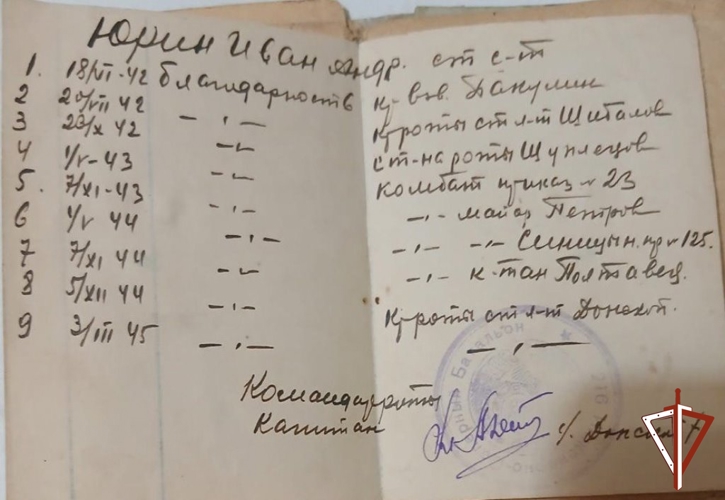 Юрин Иван Андр. ст с-т
1. 18/VII-42 благодарность к-р взв. Вакулин
2 20/VII 42 — „ — к-р роты ст л-т Шиталов
3 20/X 42 — „ — ст-на роты Шуплецов
4 1/V-43 — „ — комбат приказ № 23
5. 7/XI-43 — „ — — „ — майор Петров
6 1/V 44 — „ — — „ — — „ — Синицын. пр № 125.
7 7/XI 44 — „ — — „ — к-тан Полтавец.
8 5/XII 44 — „ — К-р роты ст л-т Донской.
9 3/III 45 — „ — — „ —
Командир роты
Капитан /Донской/
Батальон